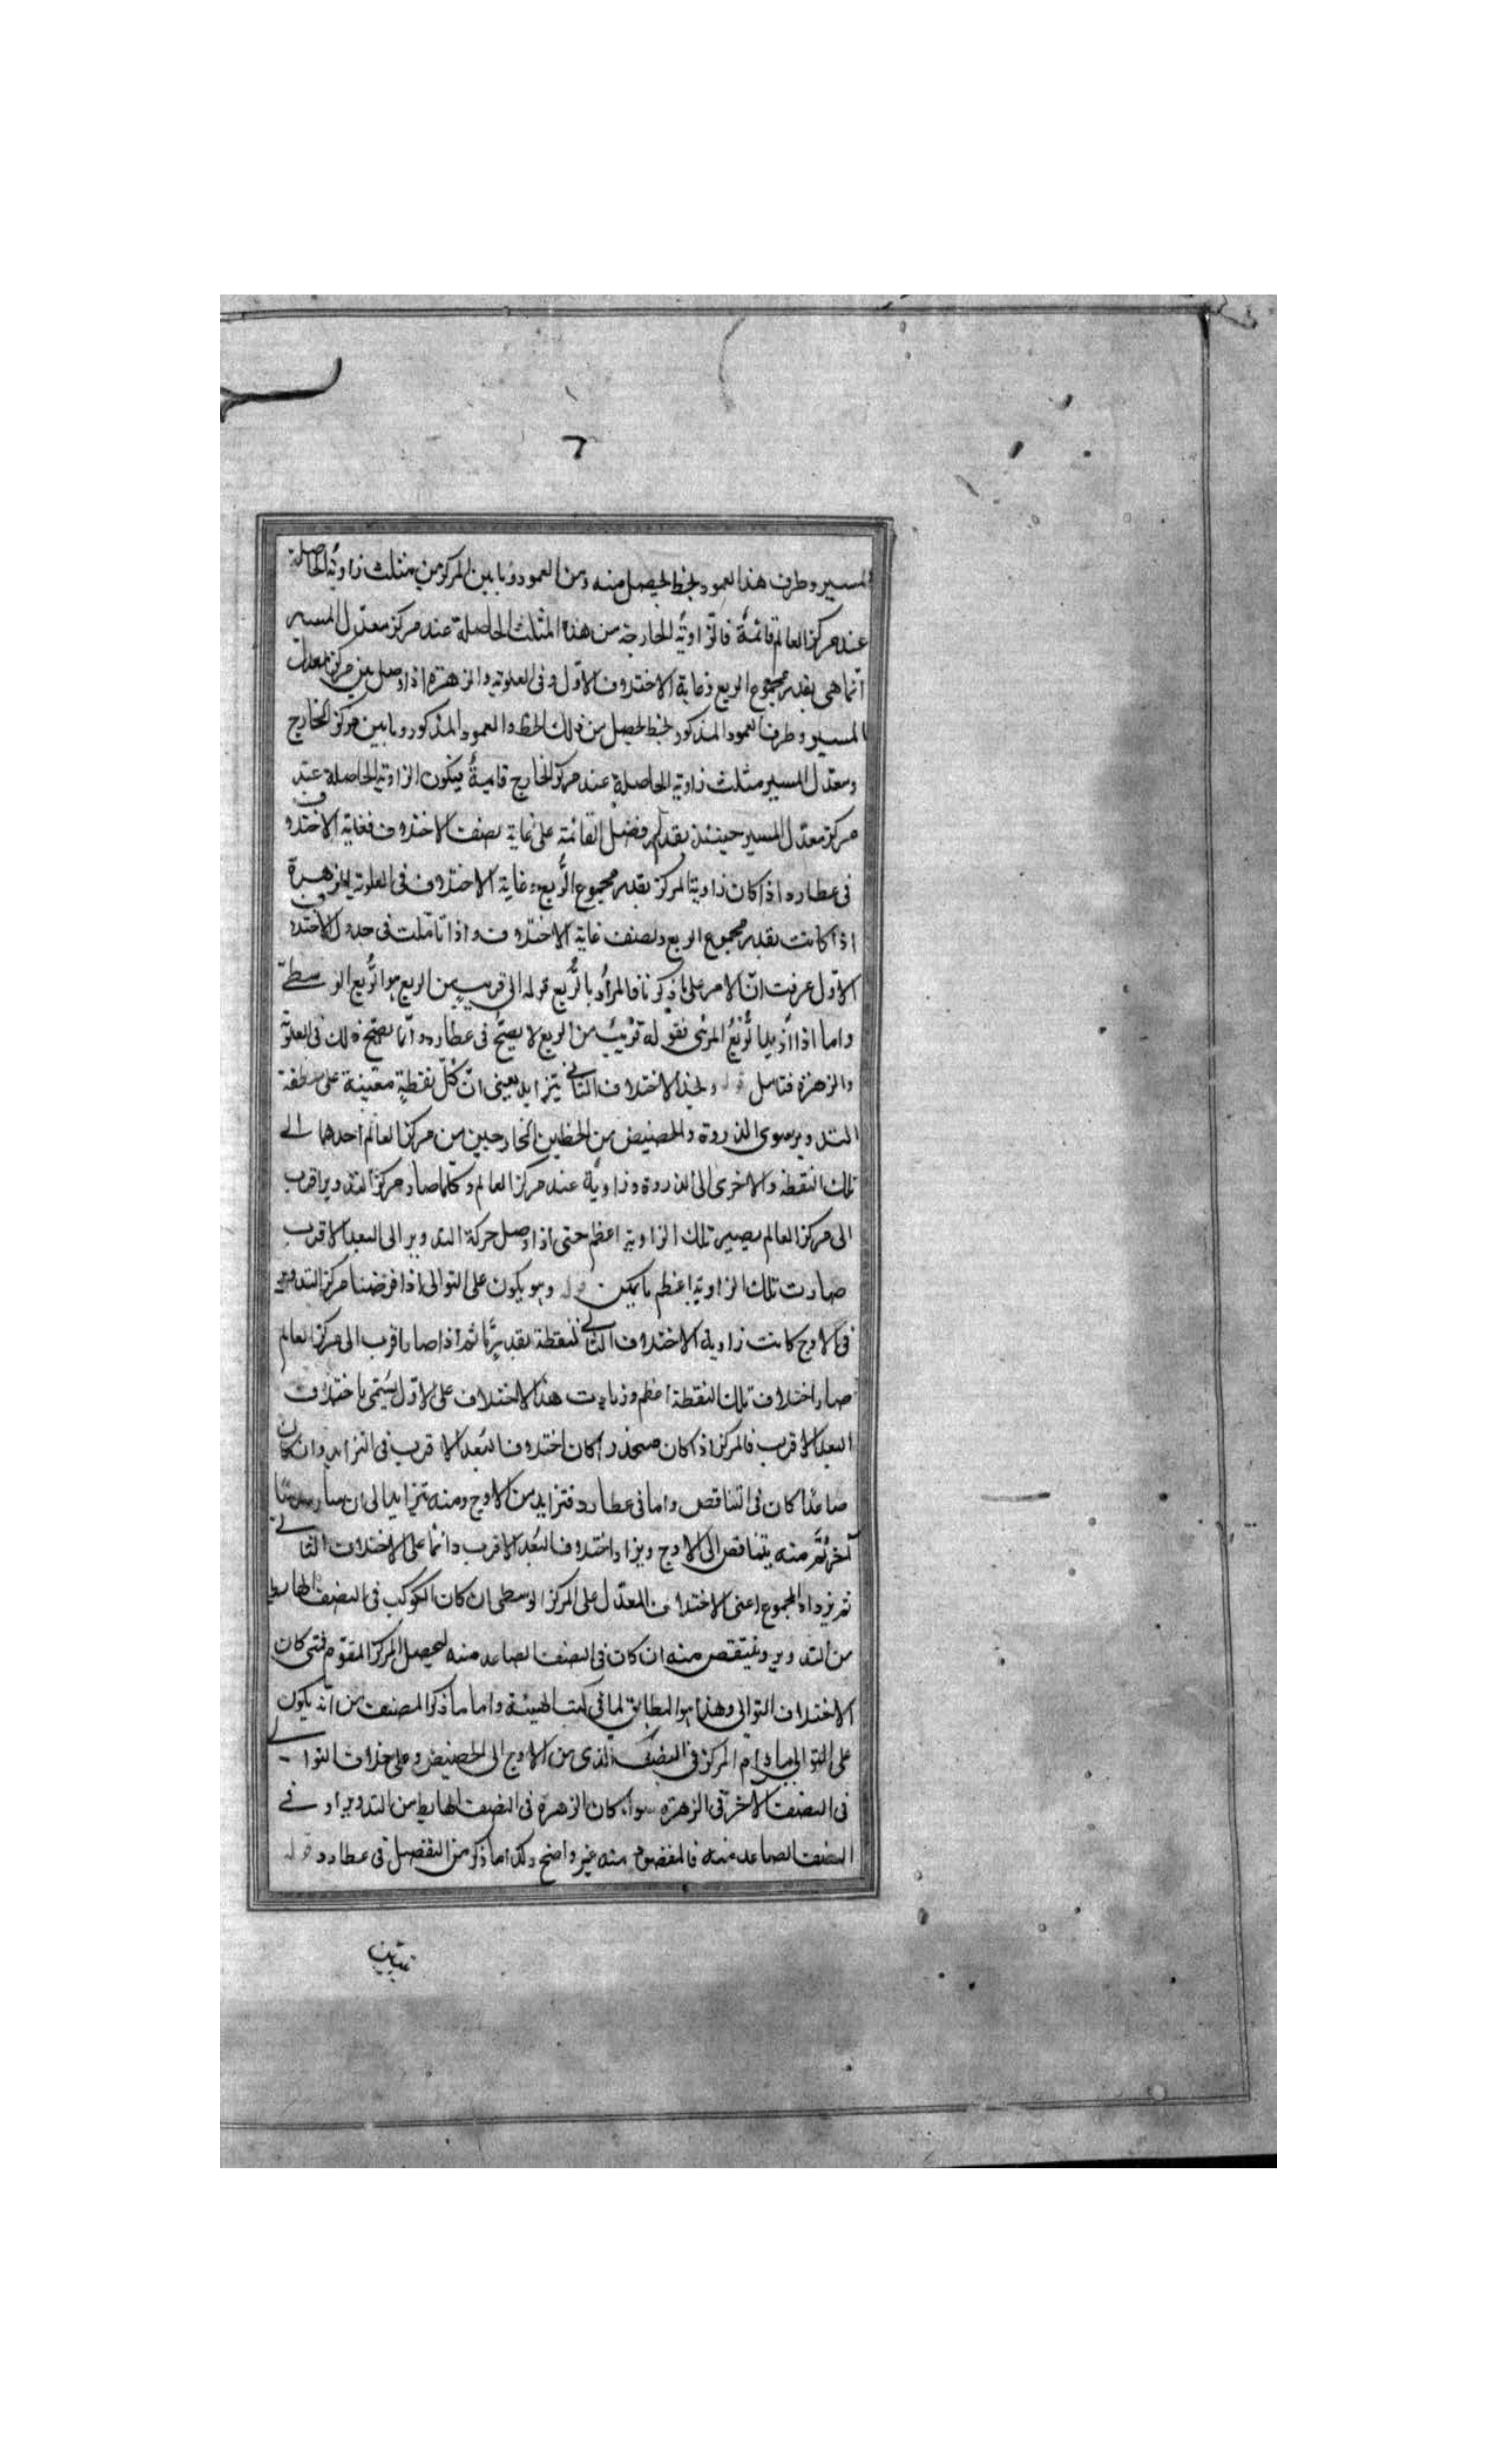 ٦
المسير وطرف هذا العمود بخط يحصل منه ومن العمود وما بين المركزين مثلث زاويته الحاصلة
عند مركز العالم قائمة فالزاوية الخارجة من هذا المثلث الحاصلة عند مركز معدل المسير
انما هى بقدر مجموع الربع وغاية الاختلاف الاول وفى العلوية والزهرة اذا وصل بين مركز معدل
المسير وطرف العمود المذكور بخط يحصل من ذلك الخط والعمود المذكور وما بين مركز الخارج
ومعدل المسير مثلث زاويته الحاصلة عند مركز الخارج قايمة فيكون الزاوية الحاصلة عند
مركز معدل المسير حينئذ بقدر فضل القائمة على غاية نصف الاختلاف فغاية الاختلاف
فى عطارد اذا كان زاوية المركز بقدر مجموع الربع وغاية الاختلاف فى العلوية والزهرة
اذا كانت بقدر مجموع الربع ونصف غاية الاختلاف واذا تأملت فى جدول الاختلاف
الاول عرفت ان الامر على ما ذكرنا فالمراد بالربع قوله الى قريب من الربع هو الربع الوسطى
واما اذا اريد الربع المرئى فقوله قريب من الربع لا يصح فى عطارد وانما يصح ذلك فى العلوية
والزهرة فتامل قوله وهذا الاختلاف الثانى يتزايد يعنى ان كل نقطة معينة على منطقة
التدوير سوى الذروة والحضيض من الخطين الخارجين من مركز العالم احدهما الى
تلك النقطة والاخرى الى الذروة وزاوية عند مركز العالم وكلما صار مركز التدوير اقرب
الى مركز العالم يصير تلك الزاوية اعظم حتى اذا وصل حركة التدوير الى البعد الاقرب
صارت تلك الزاوية اعظم ما يمكن قوله وهو يكون على التوالى اذا فرضنا مركز التدوير
فى الاوج كانت زاوية الاختلاف الثانى لنقطة بقدر ما ثم اذا صار اقرب الى مركز العالم
صار اختلاف تلك النقطة اعظم وزيادت هذا الاختلاف على الاول يسمى باختلاف
البعد الاقرب فالمركز اذا كان منحدرا كان اختلاف البعد الاقرب فى التزايد وان كان
صاعدا كان فى التناقص واما فى عطارد فتزايد من الاوج ومنه تتزايد الى ان صار
آخر ثم منه يتناقص الى الاوج ويزاد اختلاف البعد الاقرب دائما على الاختلاف الثانى
ثم يزداد المجموع اعنى الاختلاف المعدل على المركز الوسطى ان كان الكوكب فى النصف الهابط
من التدوير وينتقص منه ان كان فى النصف الصاعد منه ليحصل المركز المقوم فمتى كان
الاختلاف التوالى وهذا هو المطابق لما فى كتب الهيئة واما ما ذكر المصنف من انه يكون
على التوالى ما دام المركز فى النصف الذى من الاوج الى الحضيض وعلى خلاف التوالى
فى النصف الاخر فى الزهرة سواء كان الزهرة فى النصف الهابط من التدوير او فى
النصف الصاعد منه فالمقصود منه غير واضح وكذا ما ذكر من التفصيل فى عطارد قوله